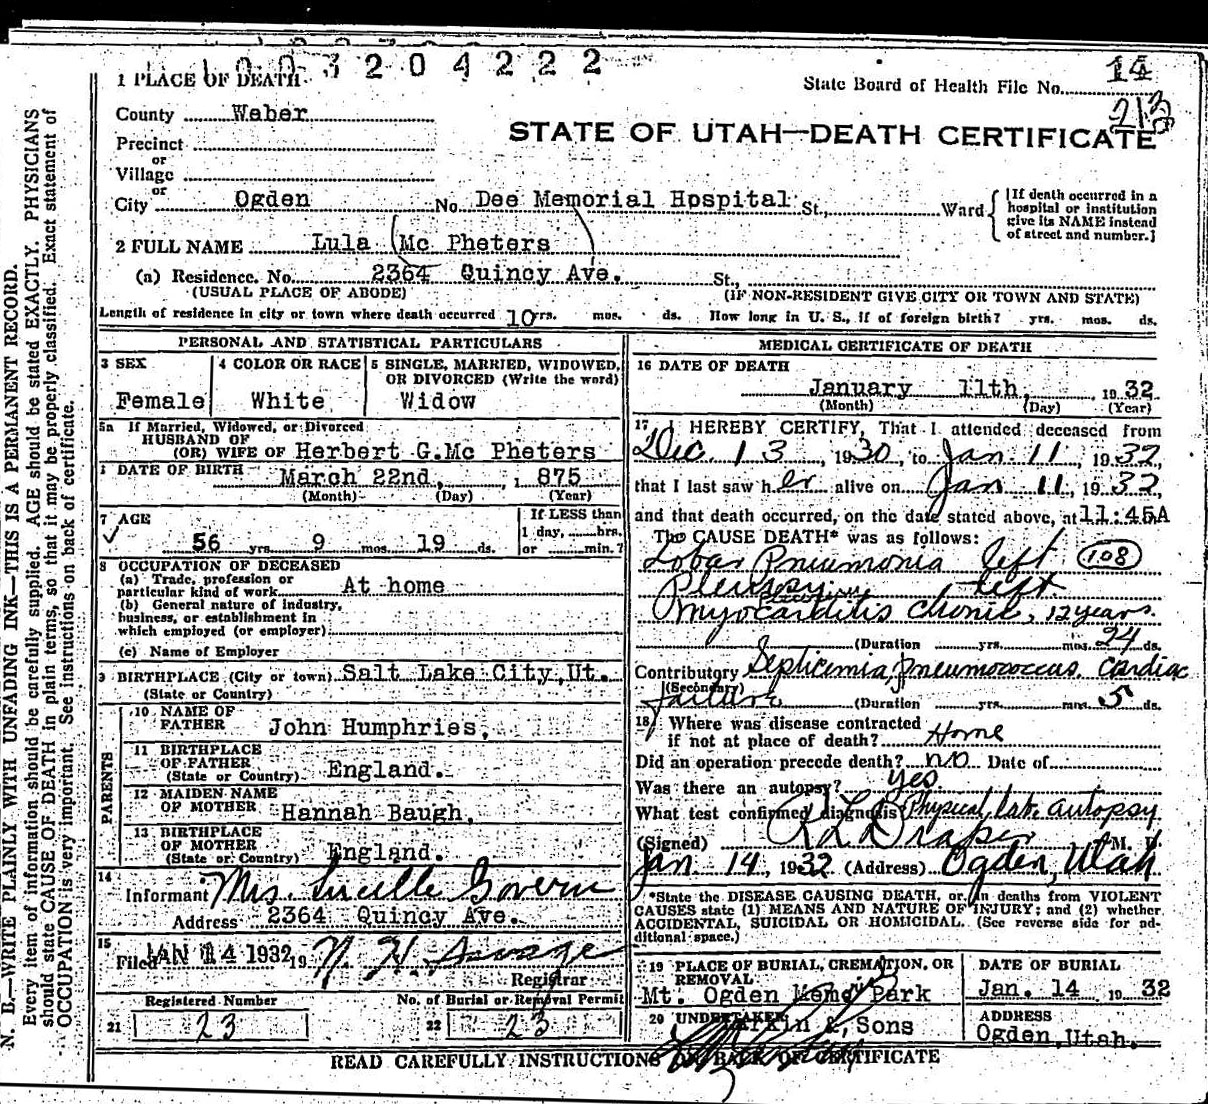 1003204222
1 PLACE OF DEATH
State Board of Health File No. 14
213
County Weber
STATE OF UTAH—DEATH CERTIFICATE
Precinct
or
Village
or
City Ogden No. Dee Memorial Hospital St., Ward
[If death occurred in a
hospital or institution
give its NAME instead
of street and number.]
2 FULL NAME Lula Mc Pheters
(a) Residence. No. 2364 Quincy Ave. St.,
(USUAL PLACE OF ABODE) (IF NON-RESIDENT GIVE CITY OR TOWN AND STATE)
Length of residence in city or town where death occurred 10 yrs. mos. ds. How long in U. S., if of foreign birth? yrs. mos. ds.
PERSONAL AND STATISTICAL PARTICULARS
3 SEX
Female
4 COLOR OR RACE
White
5 SINGLE, MARRIED, WIDOWED,
OR DIVORCED (Write the word)
Widow
5a If Married, Widowed, or Divorced
HUSBAND OF
(OR) WIFE OF Herbert G. Mc Pheters
DATE OF BIRTH March 22nd, 1875
(Month) (Day) (Year)
7 AGE
56 yrs. 9 mos. 19 ds.
If LESS than
1 day, hrs.
or min.?
8 OCCUPATION OF DECEASED
(a) Trade, profession or
particular kind of work At home
(b) General nature of industry,
business, or establishment in
which employed (or employer)
(c) Name of Employer
9 BIRTHPLACE (City or town) Salt Lake City, Ut.
(State or Country)
PARENTS
10 NAME OF
FATHER John Humphries,
11 BIRTHPLACE
OF FATHER
(State or Country) England.
12 MAIDEN NAME
OF MOTHER Hannah Baugh,
13 BIRTHPLACE
OF MOTHER
(State or Country) England.
14
Informant Mrs. Lucille Govern
Address 2364 Quincy Ave.
15
Filed JAN 14 1932 19 N. H. Savage
Registrar
Registered Number
21 23
No. of Burial or Removal Permit
22 23
MEDICAL CERTIFICATE OF DEATH
16 DATE OF DEATH
January 11th, 1932
(Month) (Day) (Year)
17 I HEREBY CERTIFY, That I attended deceased from
Dec. 13, 1930, to Jan. 11, 1932,
that I last saw her alive on Jan 11, 1932,
and that death occurred, on the date stated above, at 11:45A
The CAUSE DEATH* was as follows:
Lobar Pneumonia left 108
Pleurisy left
Myocarditis chronic, 12 years.
(Duration yrs. mos. 24 ds.
Contributory Septicemia, pneumococcus. Cardiac
(Secondary) failure (Duration yrs. mos. 5 ds.
18 Where was disease contracted
if not at place of death? Home
Did an operation precede death? no Date of
Was there an autopsy? yes.
What test confirmed diagnosis Physical, lab. autopsy
(Signed) R L Draper M. D.
Jan. 14, 1932 (Address) Ogden, Utah
*State the DISEASE CAUSING DEATH, or in deaths from VIOLENT
CAUSES state (1) MEANS AND NATURE OF INJURY; and (2) whether
ACCIDENTAL, SUICIDAL OR HOMICIDAL. (See reverse side for ad-
ditional space.)
19 PLACE OF BURIAL, CREMATION, OR
REMOVAL
Mt. Ogden Memo Park
DATE OF BURIAL
Jan. 14 1932
20 UNDERTAKER
Larkin &, Sons
ADDRESS
Ogden, Utah.
READ CAREFULLY INSTRUCTIONS ON BACK OF CERTIFICATE
N. B.—WRITE PLAINLY WITH UNFADING INK—THIS IS A PERMANENT RECORD.
Every item of information should be carefully supplied. AGE should be stated EXACTLY. PHYSICIANS
should state CAUSE OF DEATH in plain terms, so that it may be properly classified. Exact statement of
OCCUPATION is very important. See instructions on back of certificate.